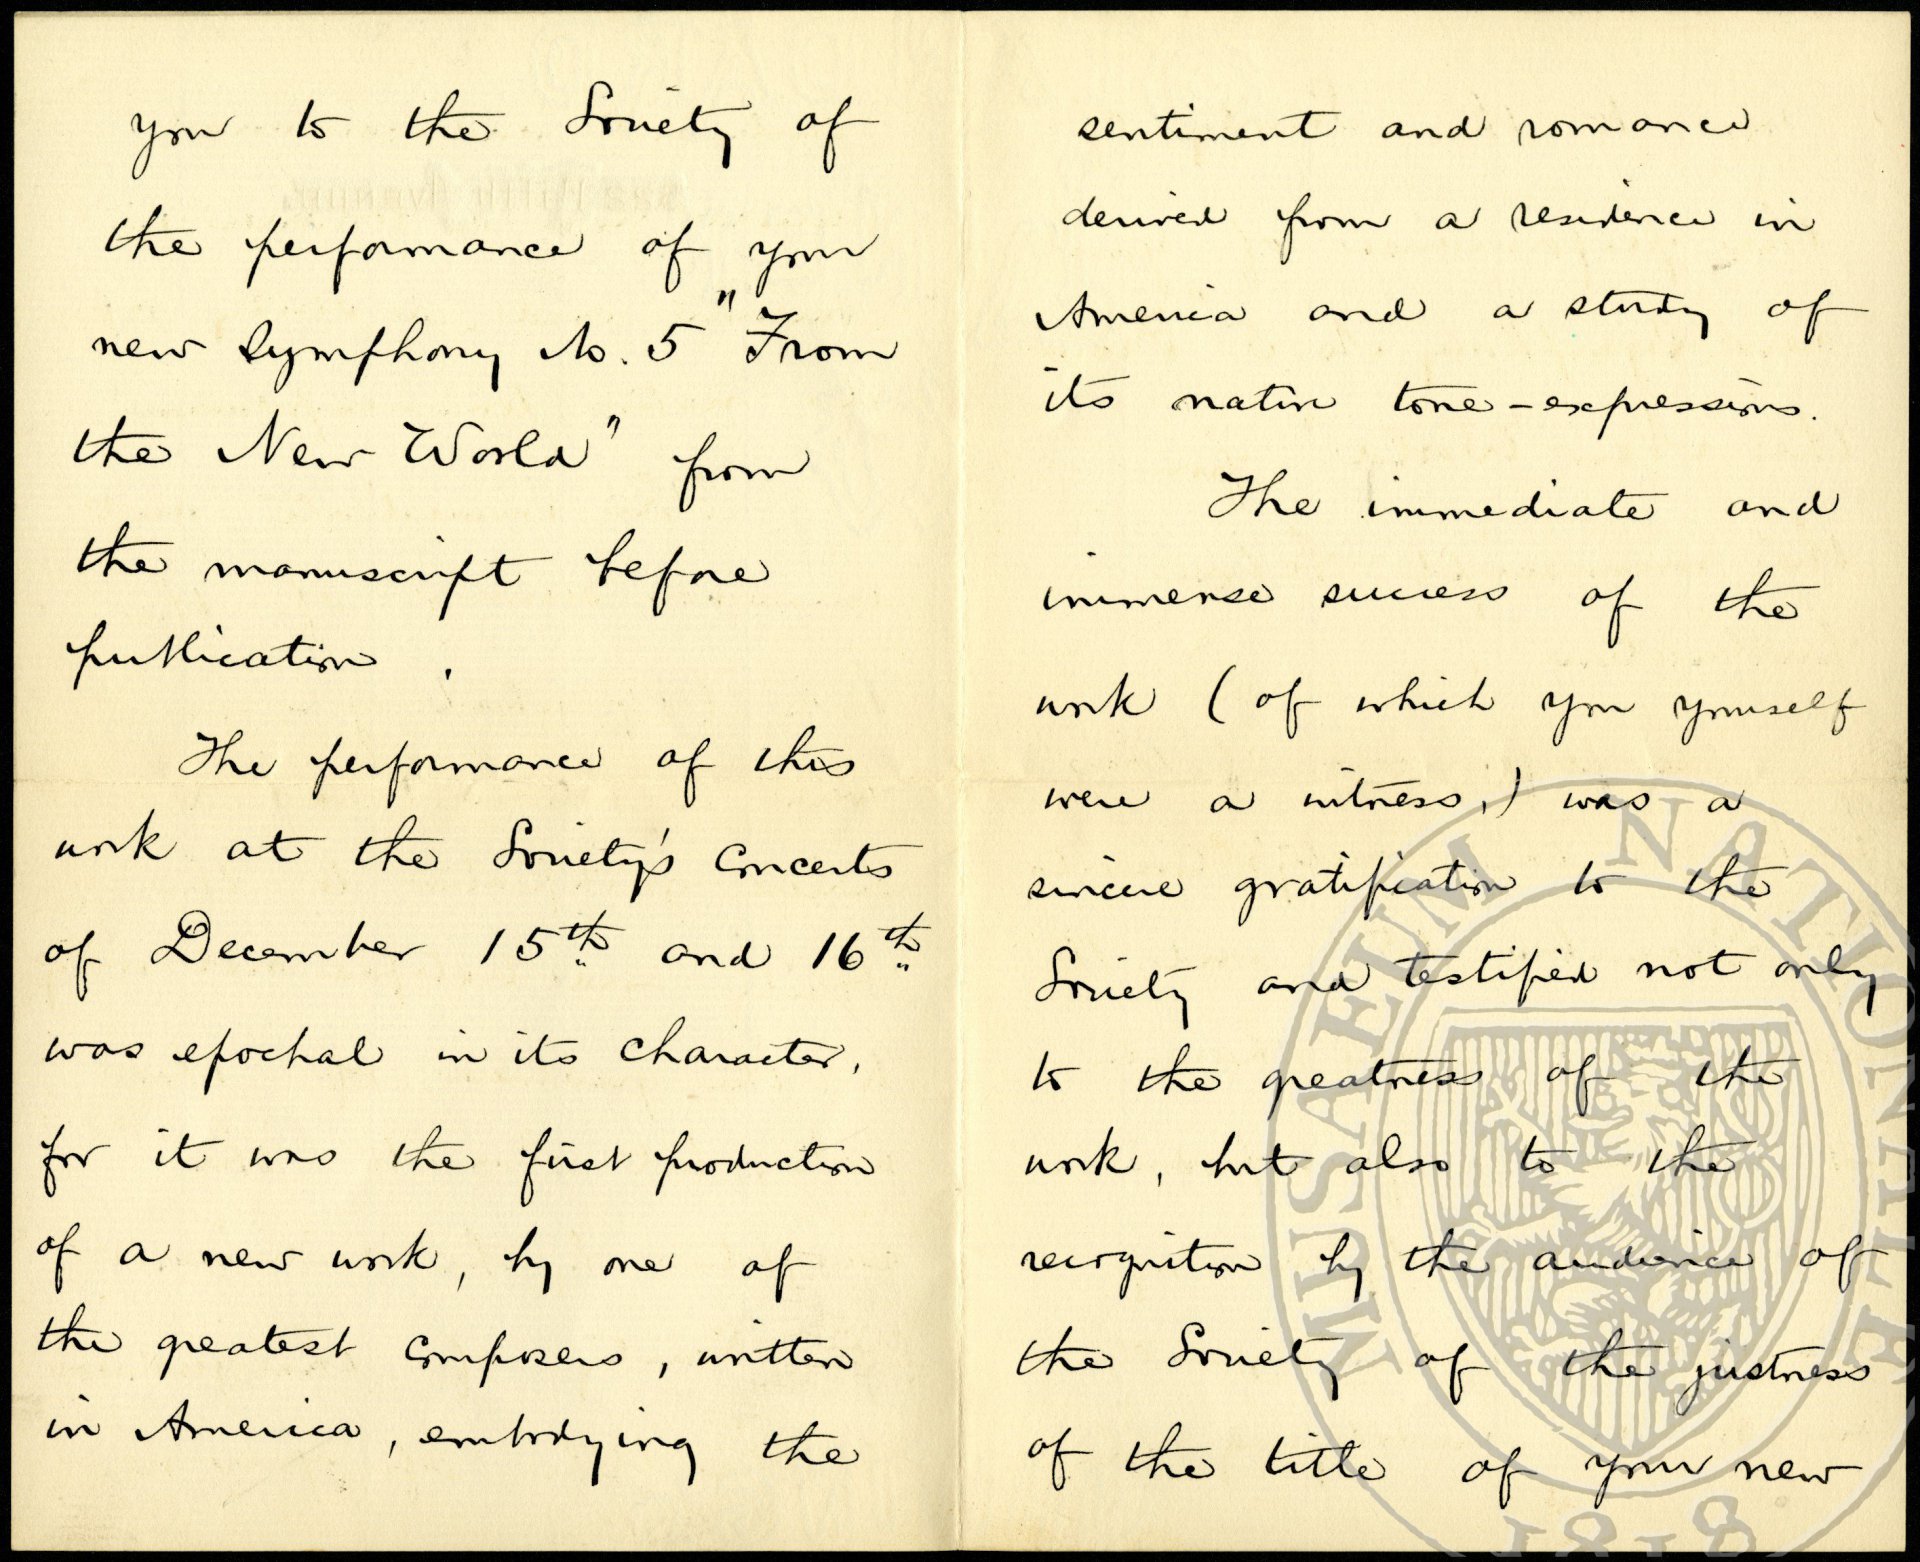 you to the Society of
the performance of your
new Symphony No. 5 "From
the New World" from
the manuscript before
publication.
The performance of this
work at the Society's concerts
of December 15th and 16th
was epochal in its character,
for it was the first production
of a new work, by one of
the greatest composers, written
in America, embodying the
sentiment and romance
derived from a residence in
America and a study of
its native tone-expressions.
The immediate and
immense success of the
work (of which you yourself
were a witness,) was a
sincere gratification to the
Society and testified not only
to the greatness of the
work, but also to the
recognition by the audience of
the Society of the justness
of the title of your new
MUSAEUM NATIONALE
1818